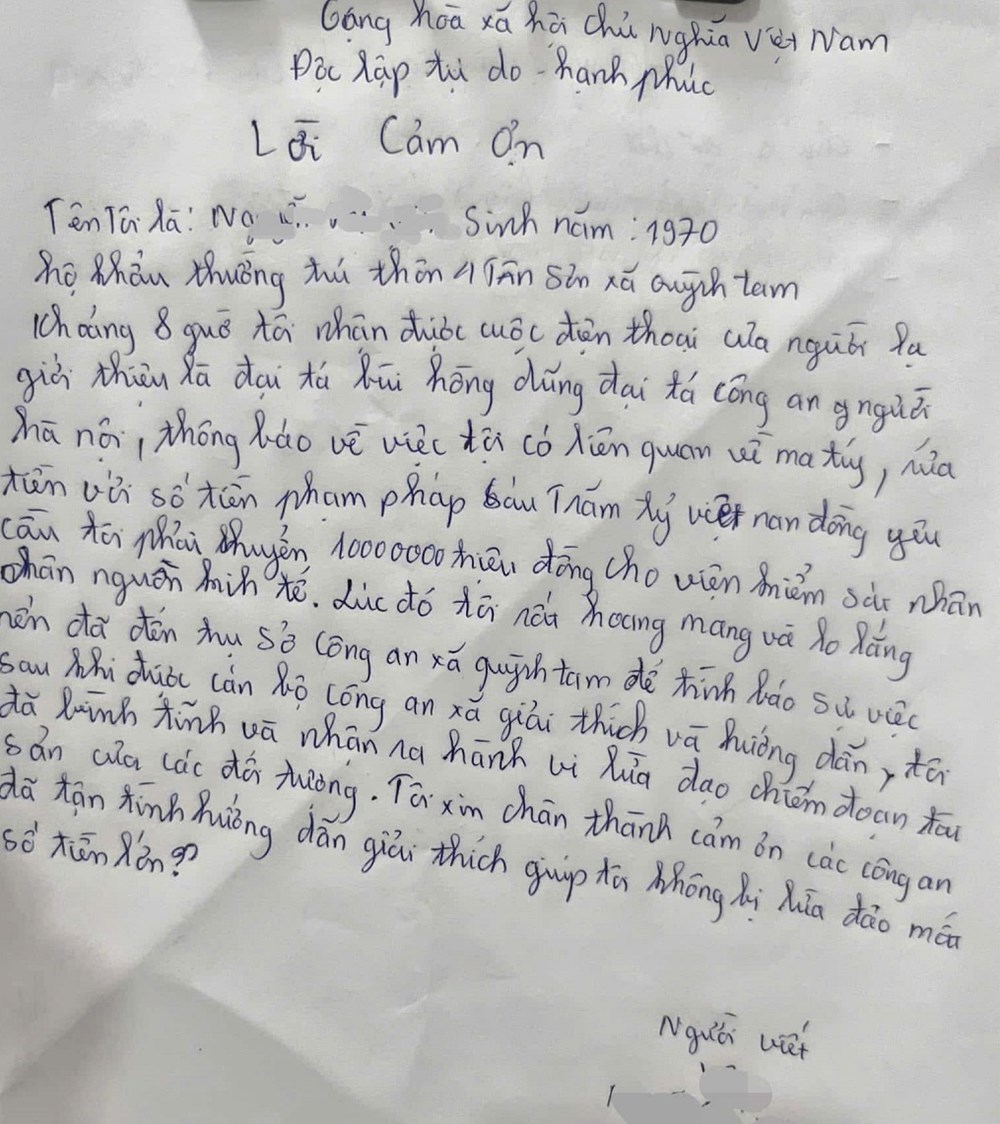 Cộng hoà xã hội chủ nghĩa Việt Nam
Độc lập tự do - hạnh phúc
Lời Cảm Ơn
Tên Tôi là: Sinh năm: 1970
hộ khẩu thường trú thôn 4 Tân Sơn xã quỳnh tam
Khoảng 8 giờ tôi nhận được cuộc điện thoại của người lạ
giới thiệu là đại tá bùi hồng dũng đại tá công an người
hà nội, thông báo về việc tôi có liên quan về ma túy, rửa
tiền với số tiền phạm pháp sáu Trăm tỷ việt nan đồng yêu
cầu tôi phải chuyển 10000000 triệu đồng cho viện kiểm sát nhân
nhân nguồn kinh tế. Lúc đó tôi rất hoang mang và lo lắng
nên đã đến trụ sở công an xã quỳnh tam để trình báo sự việc
sau khi được cán bộ công an xã giải thích và hướng dẫn, tôi
đã bình tĩnh và nhận ra hành vi lừa đạo chiếm đoạn tài
sản của các đối tượng. Tôi xin chân thành cảm ơn các công an
đã tận tình hướng dẫn giải thích giúp tôi không bị lừa đảo mất
số tiền lớn?
Người viết